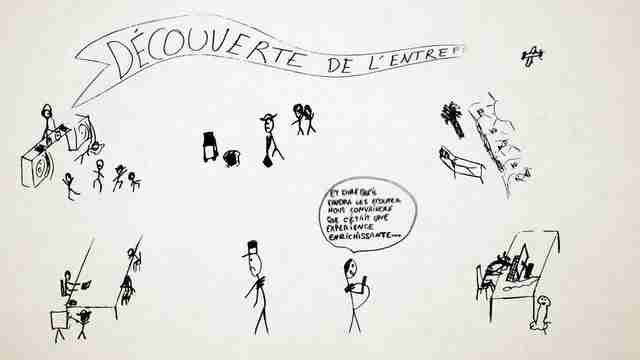 DÉCOUVERTE DE L'ENTREP
ET DIRE QU'IL
FAUDRA LES ÉCOUTER
NOUS CONVAINCRE
QUE C'ÉTAIT UNE
EXPÉRIENCE
ENRICHISSANTE...